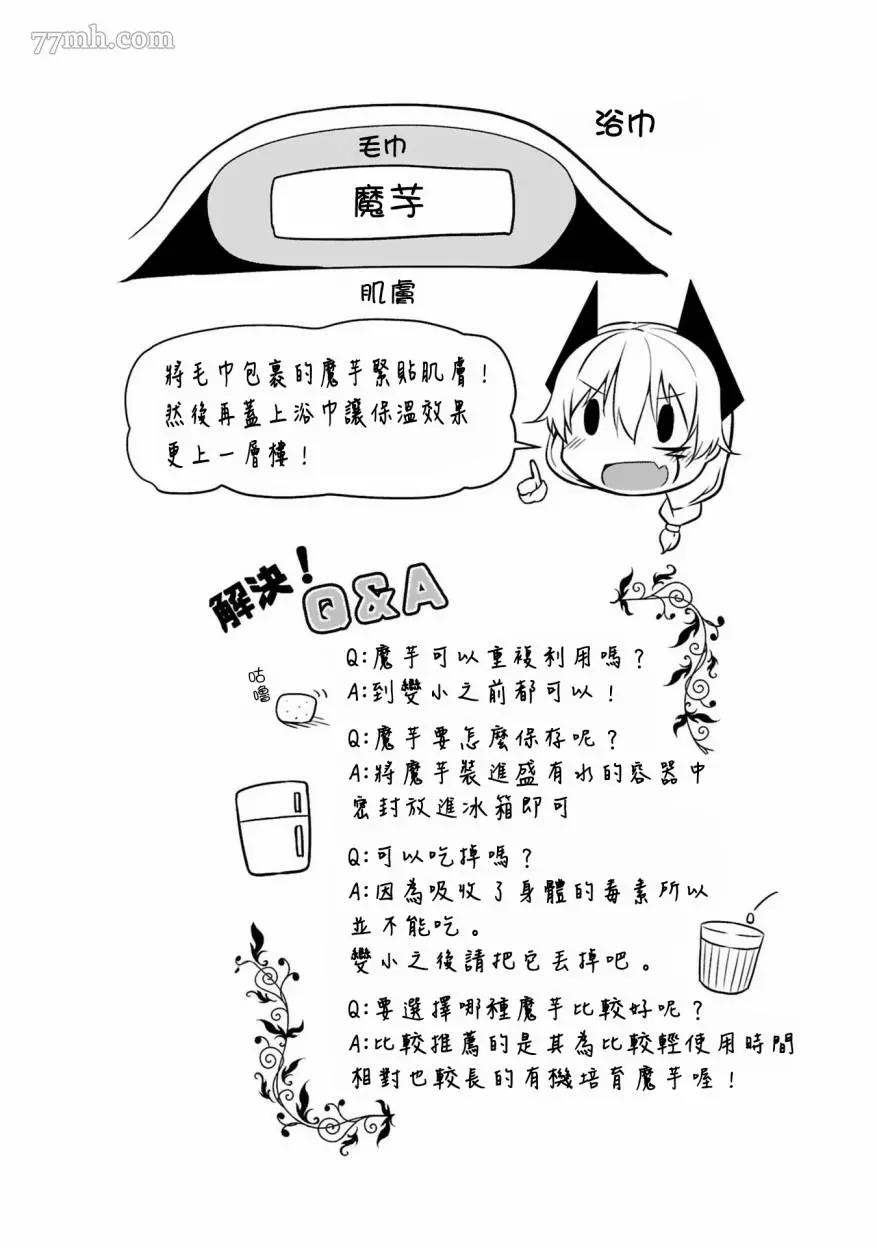 77mh.com
浴巾
毛巾
魔芋
肌膚
將毛巾包裹的魔芋緊貼肌膚！
然後再蓋上浴巾讓保溫效果
更上一層樓！
解決！
Q&A
Q:魔芋可以重複利用嗎？
A:到變小之前都可以！
咕嚕
Q:魔芋要怎麼保存呢？
A:將魔芋裝進盛有水的容器中
密封放進冰箱即可
Q:可以吃掉嗎？
A:因為吸收了身體的毒素所以
並不能吃。
變小之後請把它丟掉吧。
Q:要選擇哪種魔芋比較好呢？
A:比較推薦的是其為比較輕使用時間
相對也較長的有機培育魔芋喔！